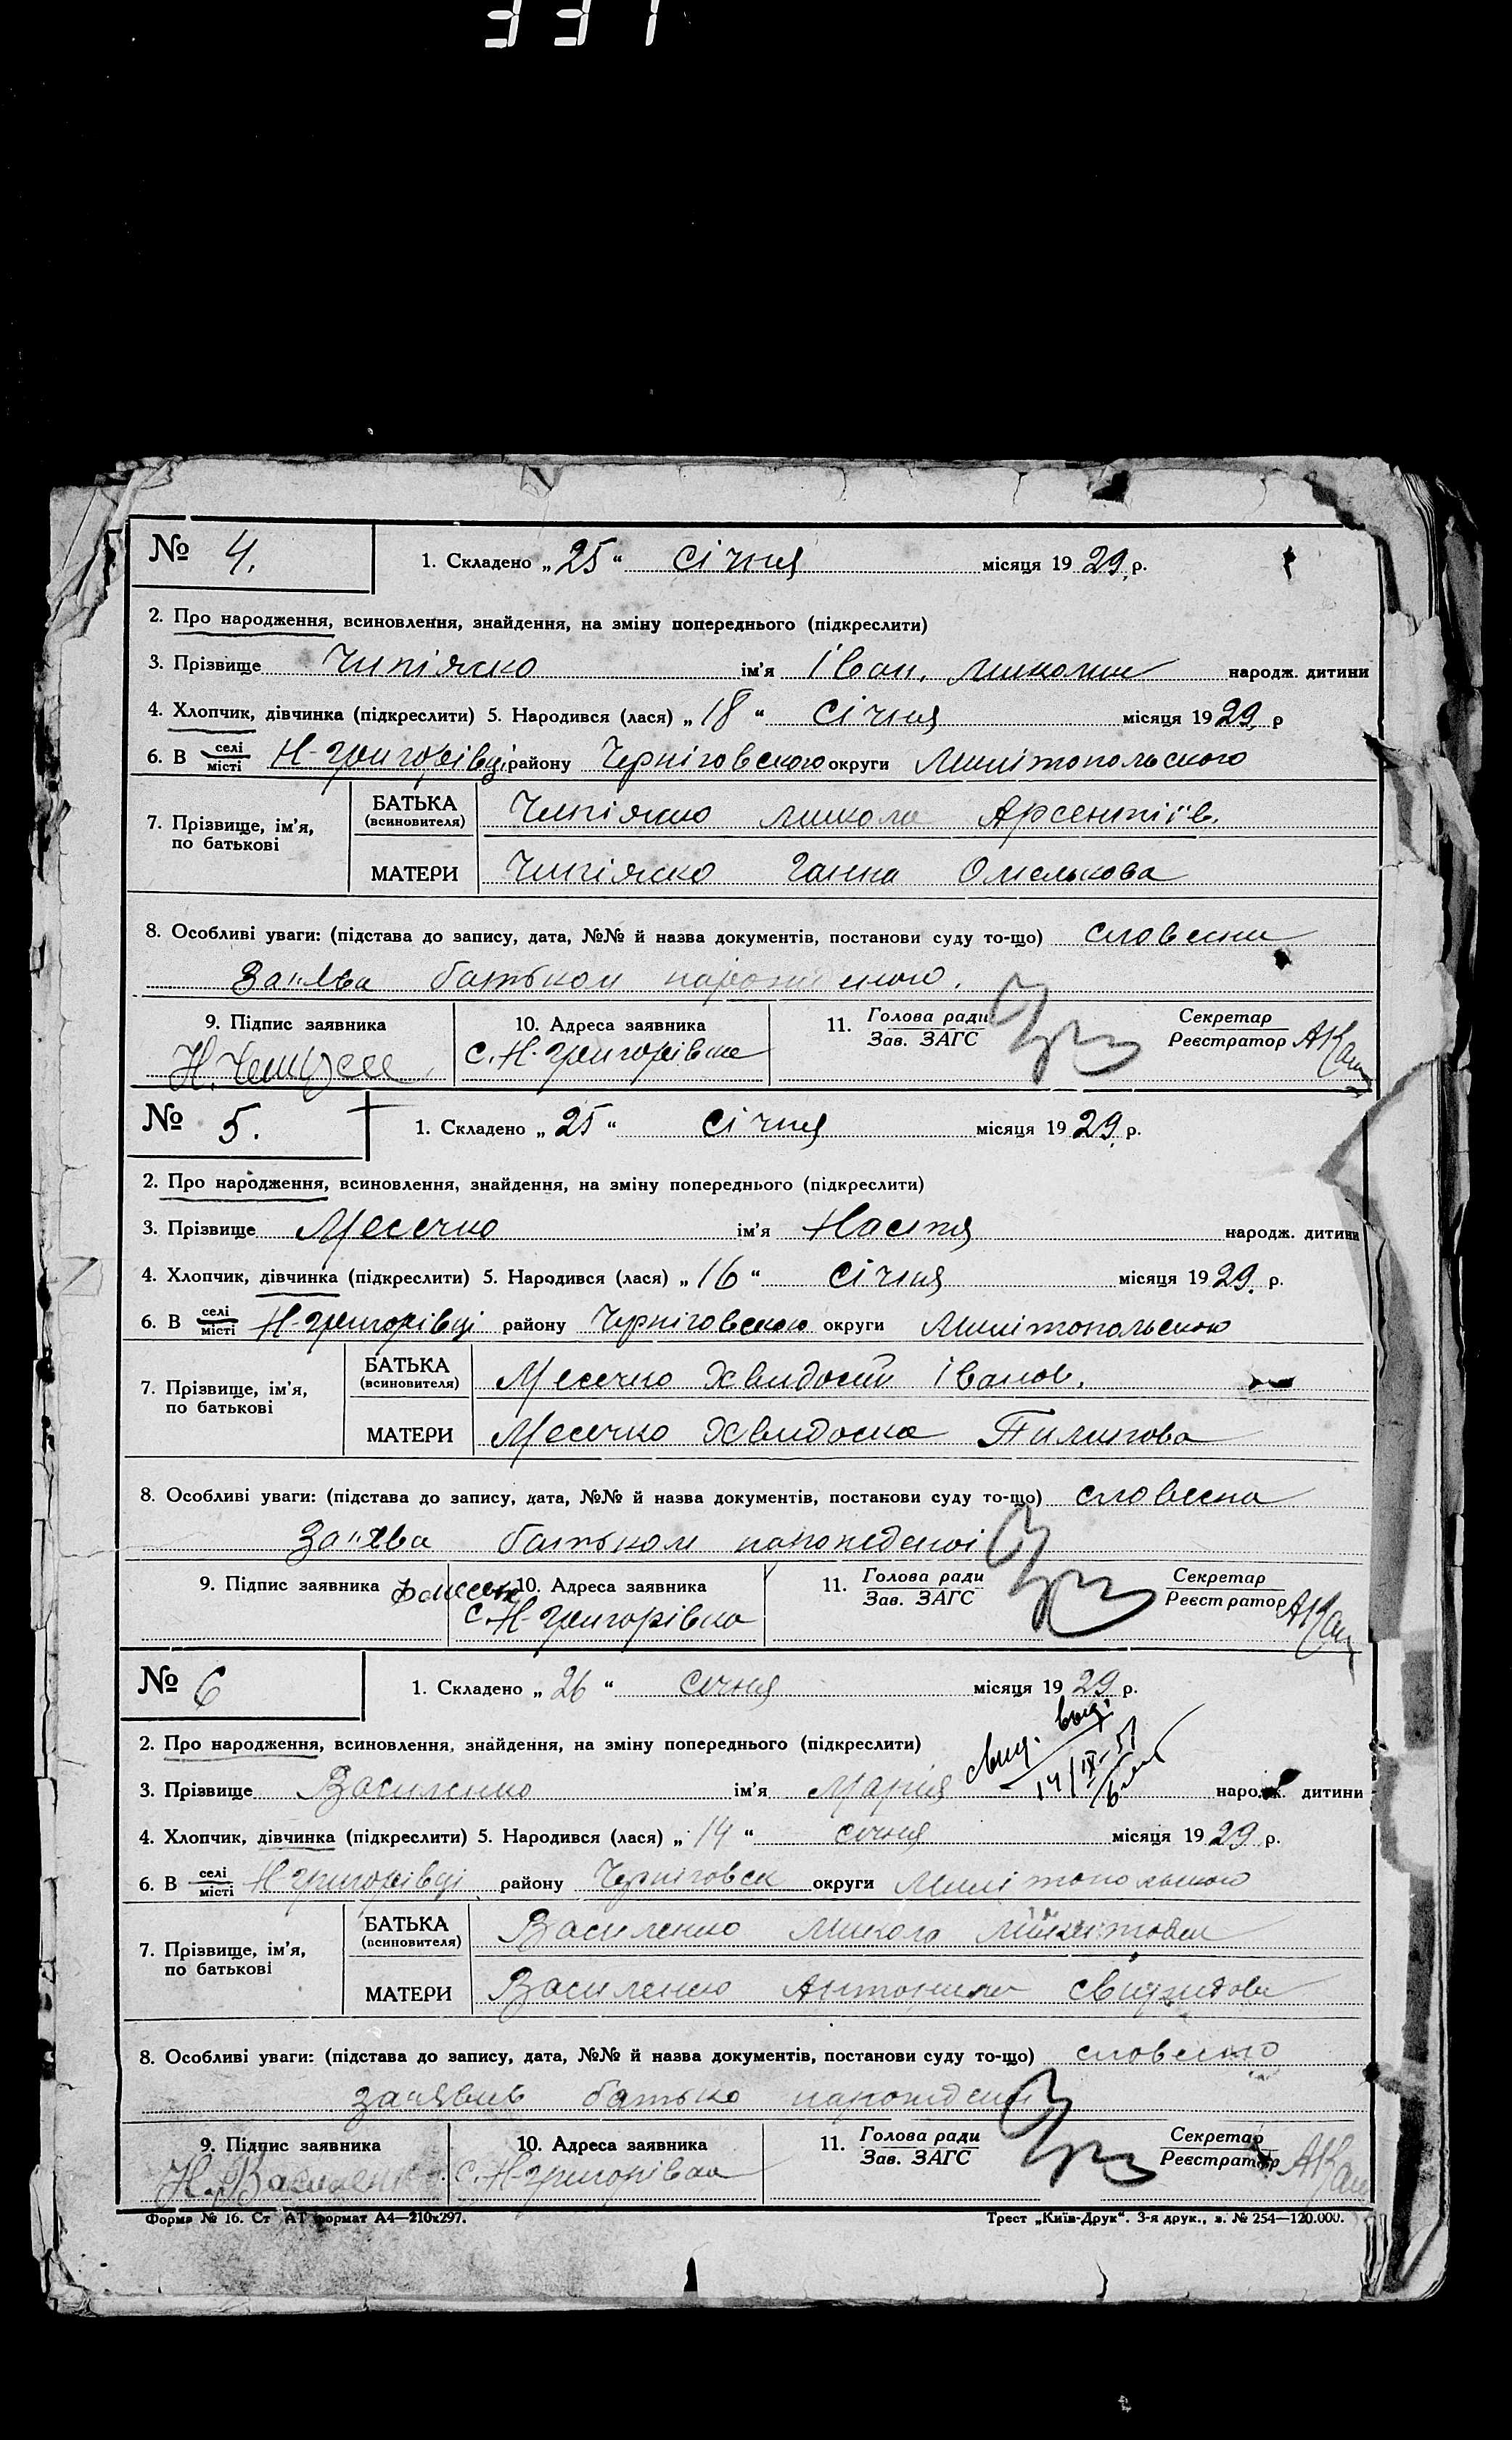 337
№ 4. 1. Складено „ 25 “ січня місяця 19 29. р.
2. Про народження, всиновлення, знайдення, на зміну попереднього (підкреслити)
3. Прізвище Чипіяско ім'я Іван. народж. дитини
4. Хлопчик, дівчинка (підкреслити) 5. Народився (лася) „ 18 “ січня місяця 19 29. р
6. В селі місті Н-Григорівці району Черніговского округи Милітопольского
7. Прізвище, ім'я, по батькові
БАТЬКА (всиновителя) Чипіяско Микола Арсентіїв.
МАТЕРИ Чипіяско Ганна Омелькова
8. Особливі уваги: (підстава до запису, дата, №№ й назва документів, постанови суду то-що) словесна
За"ява батьком
9. Підпис заявника 10. Адреса заявника 11. Голова ради Зав. ЗАГС Секретар Реєстратор
с. Н-Григорівка
№ 5. 1. Складено „ 25 “ січня місяця 19 29. р.
2. Про народження, всиновлення, знайдення, на зміну попереднього (підкреслити)
3. Прізвище Месечко ім'я Настя народж. дитини
4. Хлопчик, дівчинка (підкреслити) 5. Народився (лася) „ 16 “ січня місяця 19 29. р.
6. В селі місті Н-Григорівці району Черніговского округи Милітопольского
7. Прізвище, ім'я, по батькові
БАТЬКА (всиновителя) Месечко Хвидосій Іванов.
МАТЕРИ Месечко Хвидоска Пилипова
8. Особливі уваги: (підстава до запису, дата, №№ й назва документів, постанови суду то-що) словесна
За"ява батьком
9. Підпис заявника 10. Адреса заявника 11. Голова ради Зав. ЗАГС Секретар Реєстратор
с. Н-Григорівка
№ 6 1. Складено „ 26 “ сочня місяця 19 29. р.
2. Про народження, всиновлення, знайдення, на зміну попереднього (підкреслити)
свид. выд.
14/IX-51
3. Прізвище Василенко ім'я Марія народж. дитини
4. Хлопчик, дівчинка (підкреслити) 5. Народився (лася) „ 14 “ сочня місяця 19 29. р.
6. В селі місті Н Григорівці району Черніговск округи Милітопольского
7. Прізвище, ім'я, по батькові
БАТЬКА (всиновителя) Василенко Микола
МАТЕРИ Василенко Антонина Свиридова
8. Особливі уваги: (підстава до запису, дата, №№ й назва документів, постанови суду то-що) словесно
заявив батько
9. Підпис заявника 10. Адреса заявника 11. Голова ради Зав. ЗАГС Секретар Реєстратор
Н. Василенко с. Н-Григорівка
Форма № 16. Ст АТ формат А4—210х297. Трест „Київ-Друк“. 3-я друк., з. № 254—120.000.